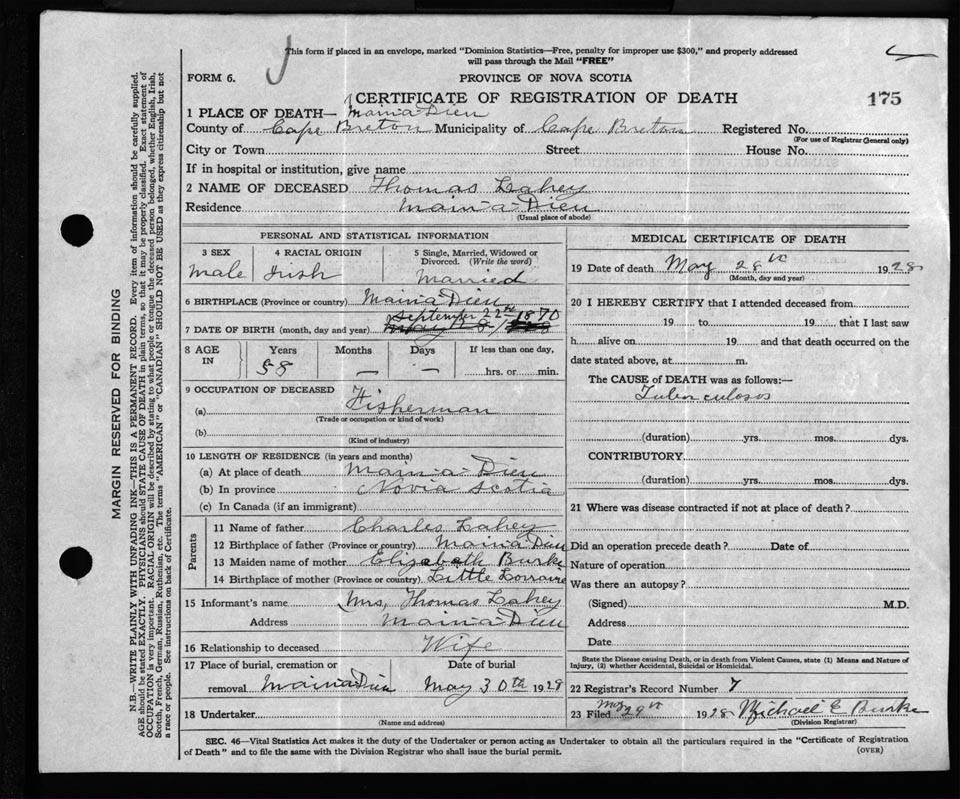 This form if placed in an envelope, marked "Dominion Statistics—Free, penalty for improper use $300," and properly addressed
will pass through the Mail "FREE"
FORM 6.
PROVINCE OF NOVA SCOTIA
CERTIFICATE OF REGISTRATION OF DEATH
175
1 PLACE OF DEATH— Main-a-Dieu
County of Cape Breton Municipality of Cape Breton Registered No.
(For use of Registrar General only)
City or Town Street House No.
If in hospital or institution, give name
2 NAME OF DECEASED Thomas Lahey
Residence Main-a-Dieu
(Usual place of abode)
PERSONAL AND STATISTICAL INFORMATION
3 SEX 4 RACIAL ORIGIN 5 Single, Married, Widowed or Divorced. (Write the word)
Male Irish Married
6 BIRTHPLACE (Province or country) Main-a-Dieu
September 22nd 1870
7 DATE OF BIRTH (month, day and year)
8 AGE IN Years Months Days If less than one day,
58 — — hrs. or min.
9 OCCUPATION OF DECEASED
(a) Fisherman
(Trade or occupation or kind of work)
(b)
(Kind of industry)
10 LENGTH OF RESIDENCE (in years and months)
(a) At place of death Main-a-Dieu
(b) In province Novia Scotia
(c) In Canada (if an immigrant)
Parents
11 Name of father Charles Lahey
12 Birthplace of father (Province or country) Main-a-Dieu
13 Maiden name of mother Elizabeth Burke
14 Birthplace of mother (Province or country) Little Lorraine
15 Informant's name Mrs, Thomas Lahey
Address Main-a-Dieu
16 Relationship to deceased Wife
17 Place of burial, cremation or Date of burial
removal Main-a-Dieu May 30th 1928
18 Undertaker
(Name and address)
MEDICAL CERTIFICATE OF DEATH
19 Date of death May 28th 1928
(Month, day and year)
20 I HEREBY CERTIFY that I attended deceased from
19 to 19 that I last saw
h alive on 19 and that death occurred on the
date stated above, at m.
The CAUSE of DEATH was as follows:—
Tuberculosos
(duration) yrs. mos. dys.
CONTRIBUTORY
(duration) yrs. mos. dys.
21 Where was disease contracted if not at place of death?
Did an operation precede death? Date of
Nature of operation
Was there an autopsy?
(Signed) M.D.
Address
Date
State the Disease causing Death, or in death from Violent Causes, state (1) Means and Nature of
Injury, (2) whether Accidental, Suicidal or Homicidal.
22 Registrar's Record Number 7
23 Filed May 29th 1928 Michael E Burke
(Division Registrar)
SEC. 46—Vital Statistics Act makes it the duty of the Undertaker or person acting as Undertaker to obtain all the particulars required in the "Certificate of Registration
of Death" and to file the same with the Division Registrar who shall issue the burial permit.
(OVER)
MARGIN RESERVED FOR BINDING
N.B.—WRITE PLAINLY WITH UNFADING INK—THIS IS A PERMANENT RECORD. Every item of information should be carefully supplied.
AGE should be stated EXACTLY. PHYSICIANS should STATE CAUSE OF DEATH in plain terms, so that it may be properly classified. Exact statement of
OCCUPATION is very important. RACIAL ORIGIN will be described by stating to what people or tongue the deceased person belonged, whether English, Irish,
Scotch, French, German, Russian, Ruthenian, etc. The terms "AMERICAN" or "CANADIAN" SHOULD NOT BE USED as they express citizenship but not
a race or people. See instructions on back of Certificate.